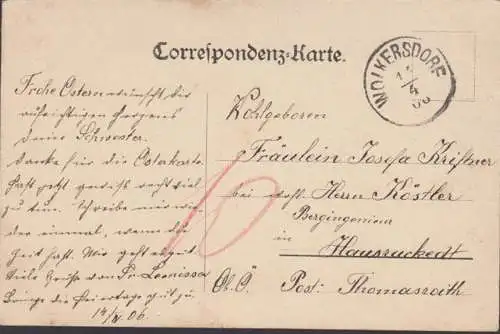 Correspondenz-Karte.
WOLKERSDORF
14
4
06
Frohe Ostern wünscht Dir
aufrichtigen Herzens
deine Schwester.
Danke für die Osterkarte.
Hast jetzt gewiß recht viel
zu tun. Schreibe mir wie-
der einmal, wenn du
Zeit hast. Mir geht es gut.
Viele Grüße von Fr. Leonissa
Bringe die Feiertage gut zu.
14/IV. 06.
Wohlgeboren
Fräulein Josefa Kristner
bei wohl. Herrn Köstler
Bergingenieur
in
Hausruckedt
Ob. Ö. Post: Thomasroith
10